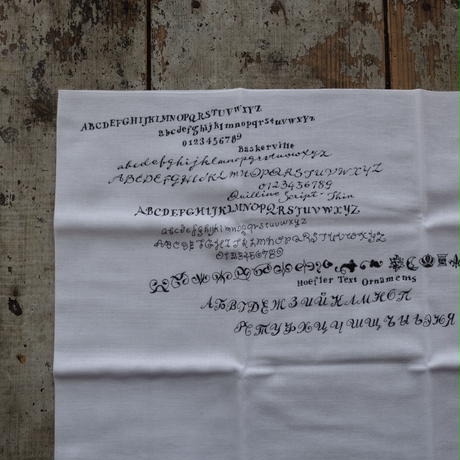 ABCDEFGHIJKLMNOPQRSTUVWXYZ
abcdefghijklmnopqrstuvwxyz
0123456789
Baskerville
abcdefghijklmnopqrstuvwxyz
ABCDEFGHIJKLMNOPQRSTUVWXYZ
0123456789
Quilline Script Thin
ABCDEFGHIJKLMNOPQRSTUVWXYZ
abcdefghijklmnopqrstuvwxyz
ABCDEFGHIJKLMNOPQRSTUVWXYZ
0123456789
Hoefler Text Ornaments
АБВГДЕЖЗИЙКЛМНОП
РСТУФХЦЧШЩЪЫЬЭЮЯ